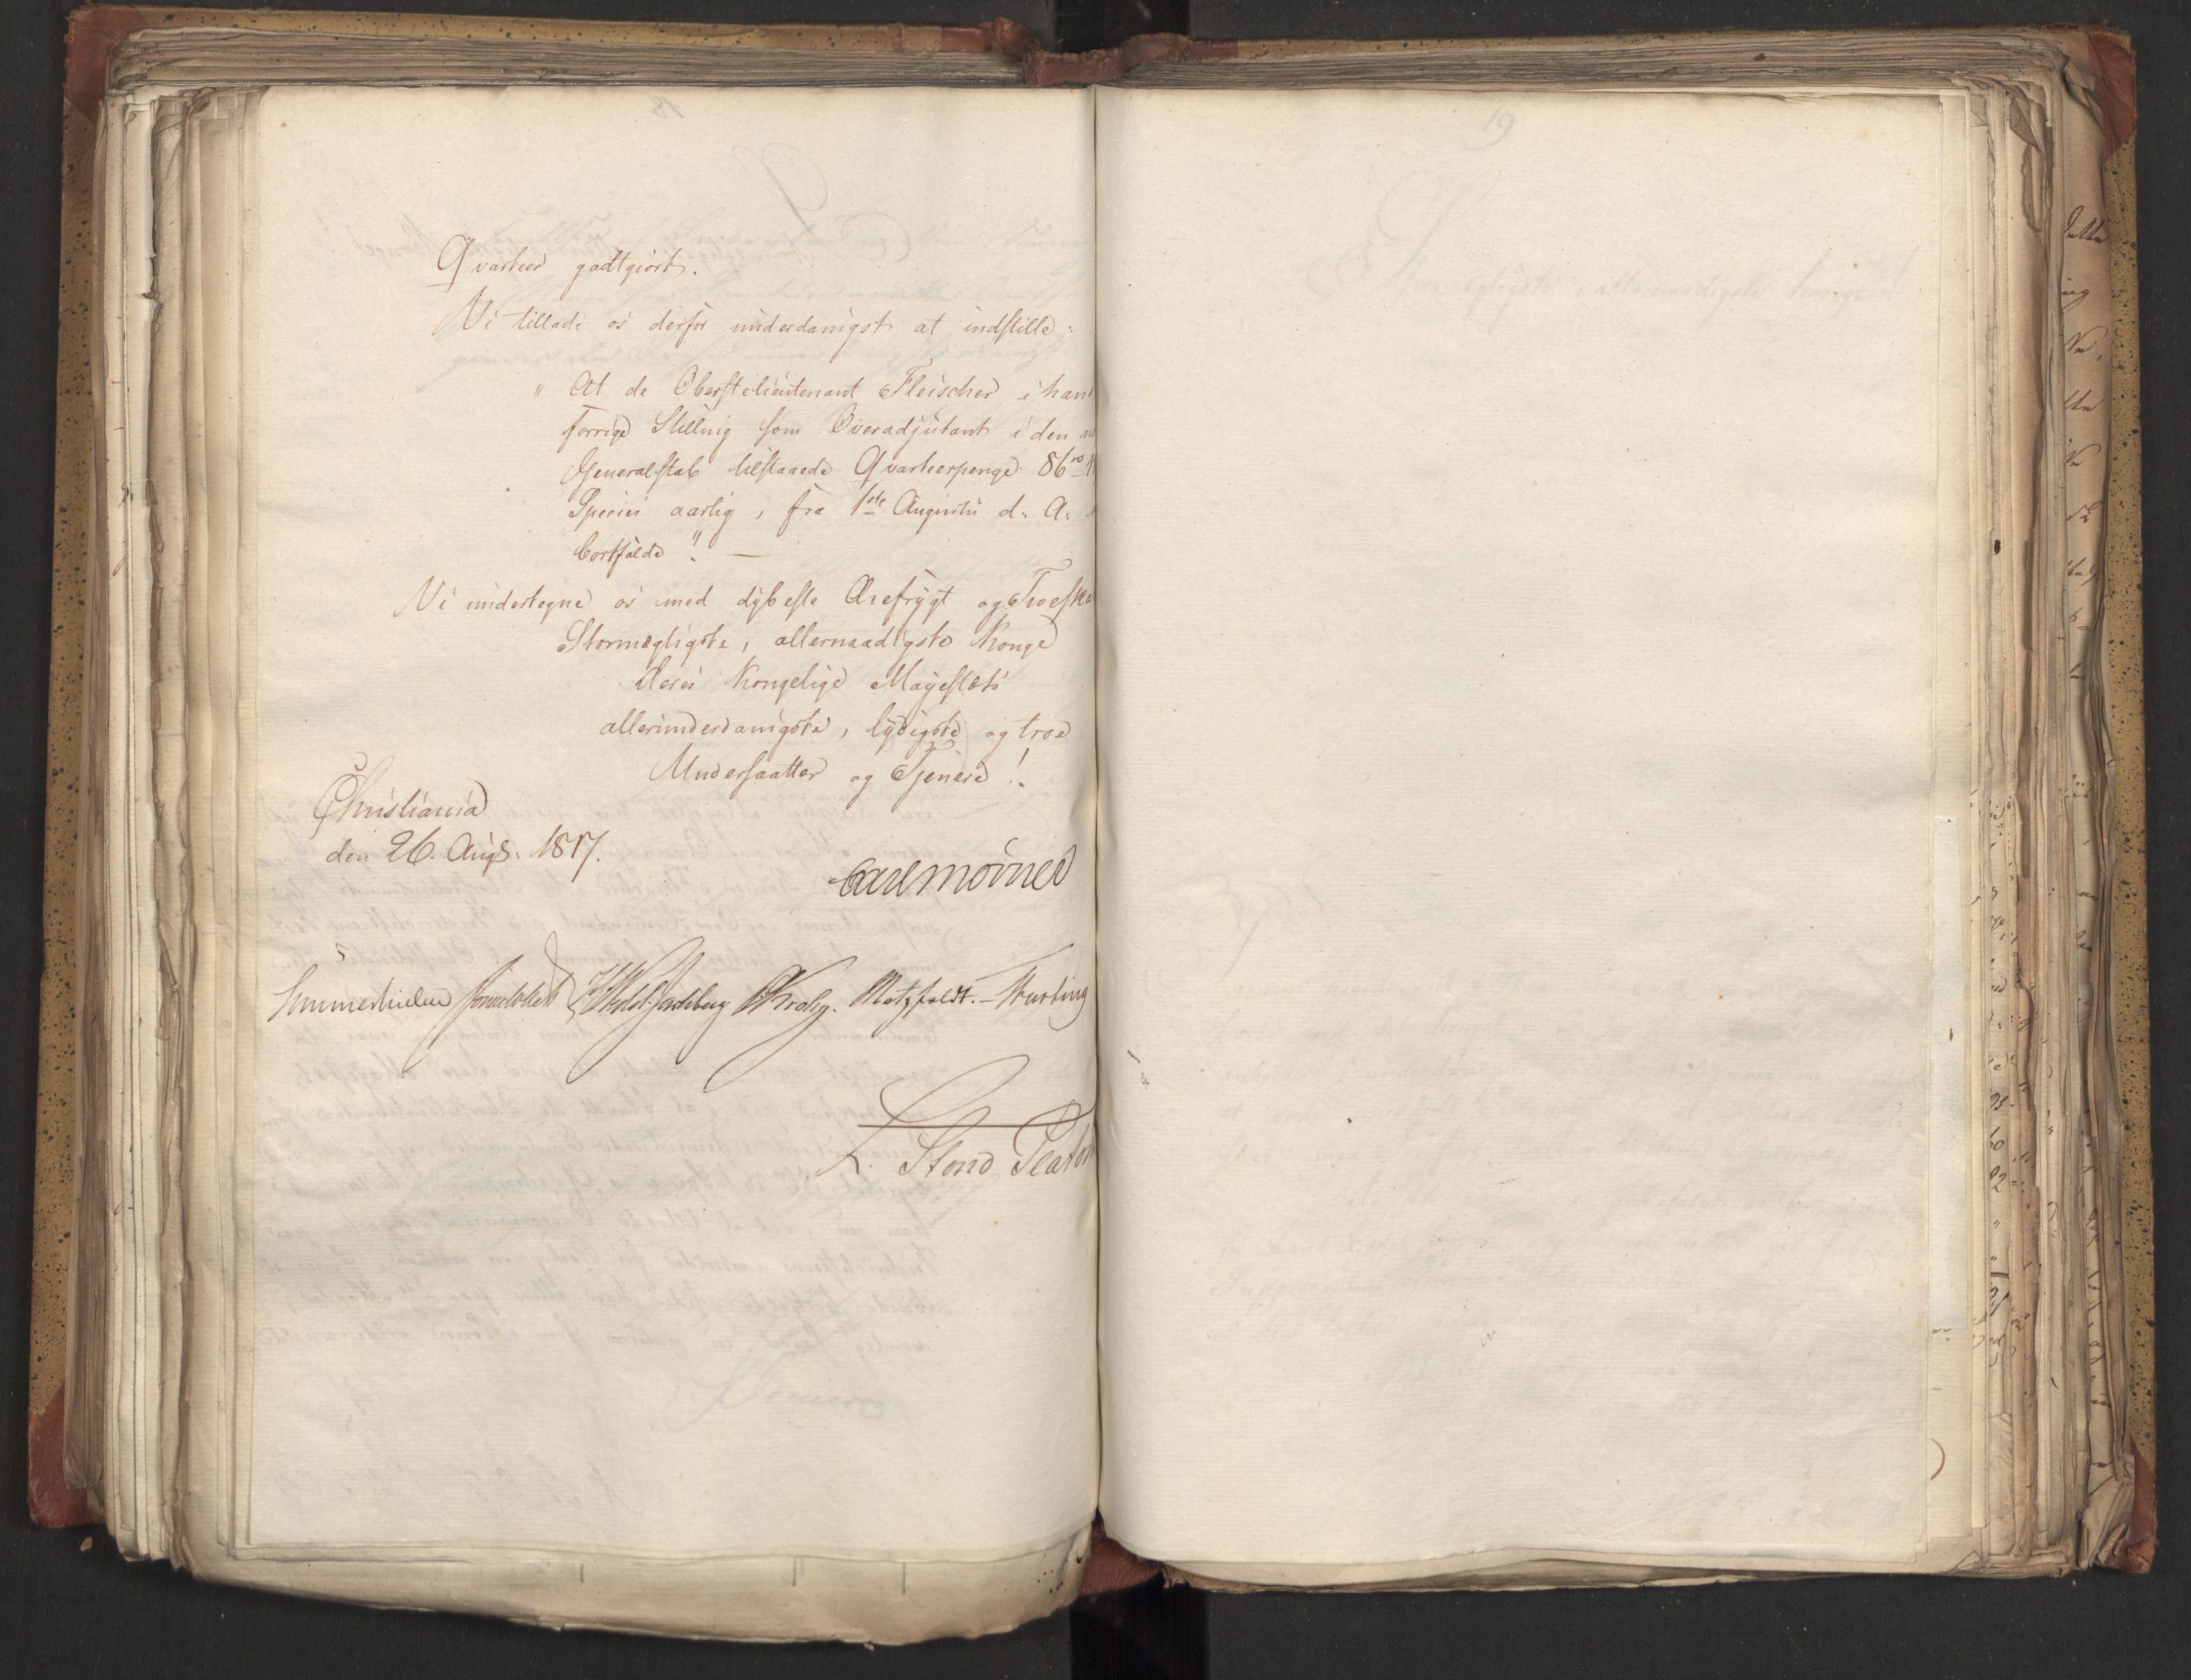 Qvarteer godtgiort.
Vi tillade os derfor underdanigst at indstille:
" At de Oberstelieutenant Fleischer i han
forrige Stilling som Overadjutant i den
Generalstab tilstaaede Qvarteerpenge 86
Species aarlig, fra 1ste Augusti d: A:
bortfalde". —
Vi undertegne os med dybeste Ærefrygt og Troeska
Stormægtigste, allernaadigste Konge
Deres Kongelige Mayestæts
allerunderdanigste, lydigste og troe
Undersaatter og Tjenere!
Christiania
den 26. Augs: 1817.
Carl Mörner
Sommerhielm Hetzfeldt. Krohg. Motzfeldt. – Thurting
L. Stoud Platou
19